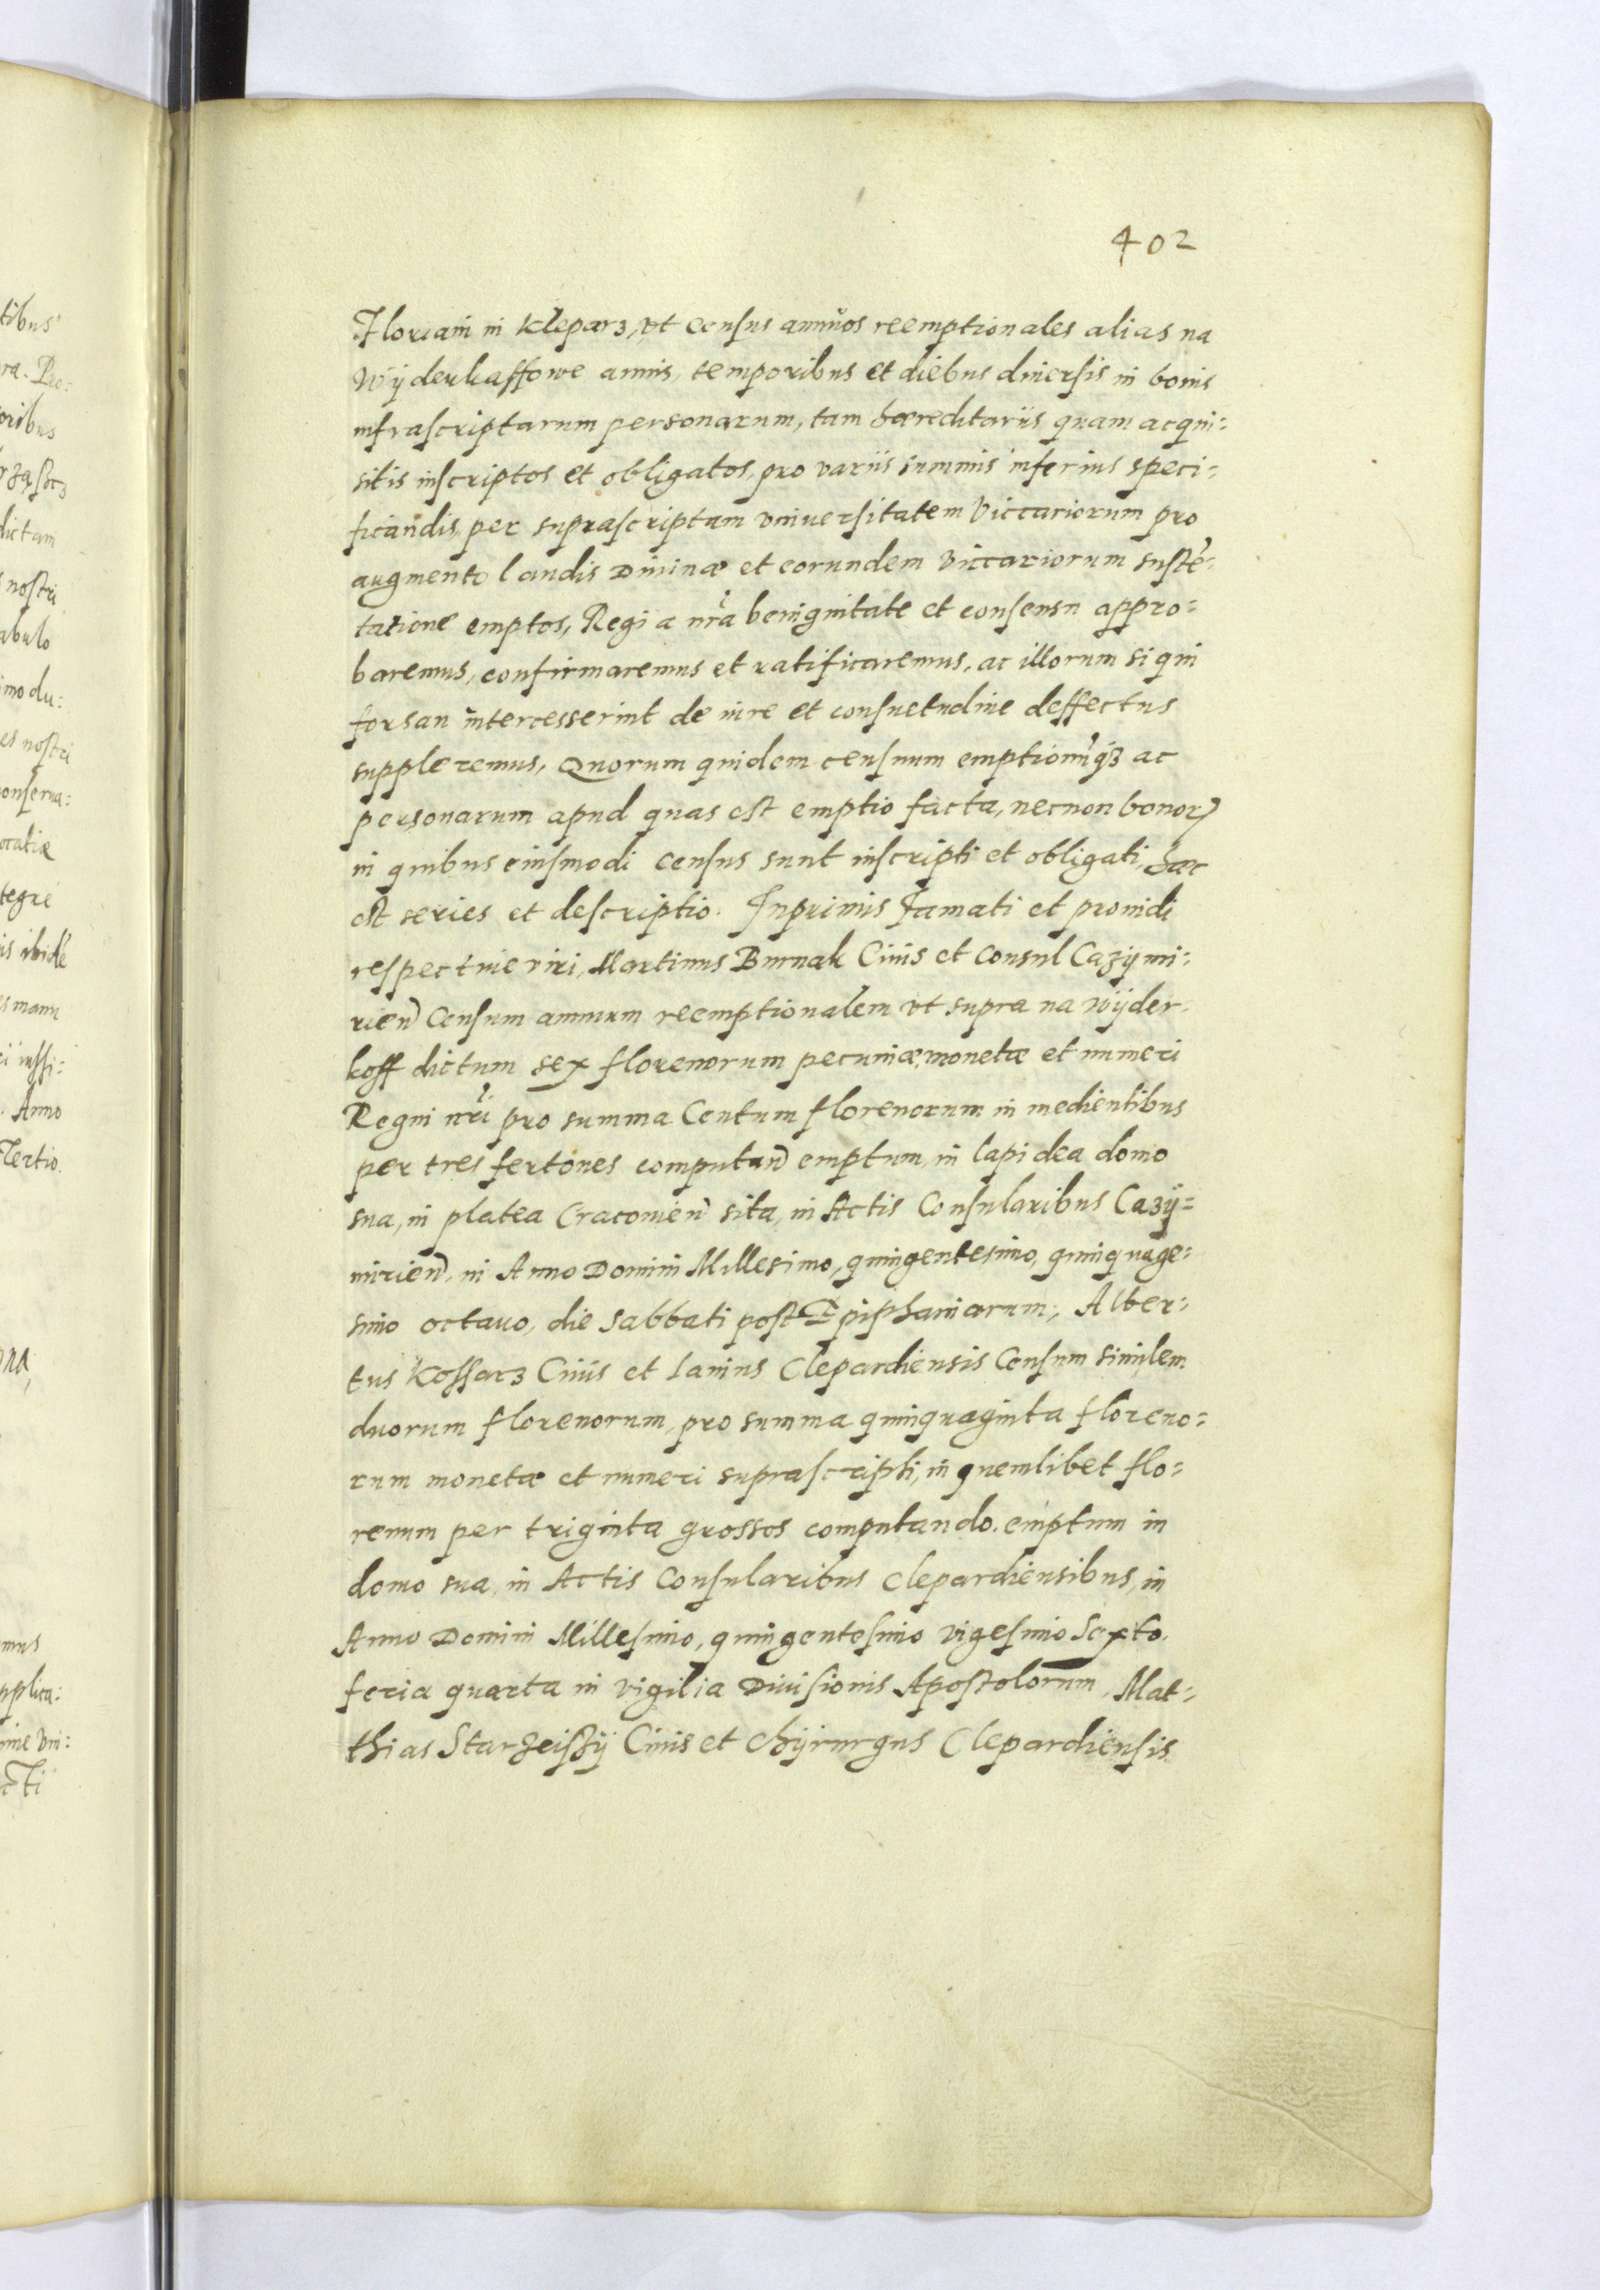 402
Floriani in Kleparz, vt census annuos reemptionales alias na
Wÿderkaffowe annis, temporibus et diebus diuersis in bonis
infrascriptarum personarum, tam hæreditariis quam acqui:
sitis inscriptos et obligatos, pro variis summis inferius speci:
ficandis, per suprascriptam vniuersitatem Viccariorum pro
augmento laudis Diuinæ et eorundem Viccariorum sustē:
tatione emptos, Regia nr̃a benignitate et consensu appro:
baremus, confirmaremus et ratificaremus, ac illorum si qui
forsan intercesserint de iure et consuetudine deffectus
suppleremus, Quorum quidem censuum emptionūq3 ac
personarum apud quas est emptio facta, necnon bonorꝝ
in quibus eiusmodi census sunt inscripti et obligati, hæc
est series et descriptio. Inprimis Famati et prouidi
respectiue viri, Martinus Burnak Ciuis et Consul Cazÿmi:
rien̄ Censum annuum reemptionalem vt supra na wÿder:
koff dictum sex florenorum pecuniæ, monetæ et numeri
Regni nr̃i pro summa Centum florenorum in medientibus
per tres fertones computan̄ emptum, in lapidea domo
sua, in platea Cracouien̄ sita, in Actis Consularibus Cazÿ=
mirien̄, in Anno Domini Millesimo, quingentesimo, quinquage:
simo octauo, die Sabbati post Epiphaniarum, Alber:
tus Kossarz Ciuis et Lanius Clepardiensis Censum similem
duorum florenorum, pro summa quinquaginta floreno:
rum monetæ et numeri suprascripti, in quemlibet flo:
renum per triginta grossos computando. emptum in
domo sua, in Actis Consularibus Clepardiensibus, in
Anno Domini Millesimo, quingentesimo vigesimo Sexto.
feria quarta in vigilia Diuisionis Apostolorum, Mat:
thias Ciuis et Chÿrurgus Clepardiensis